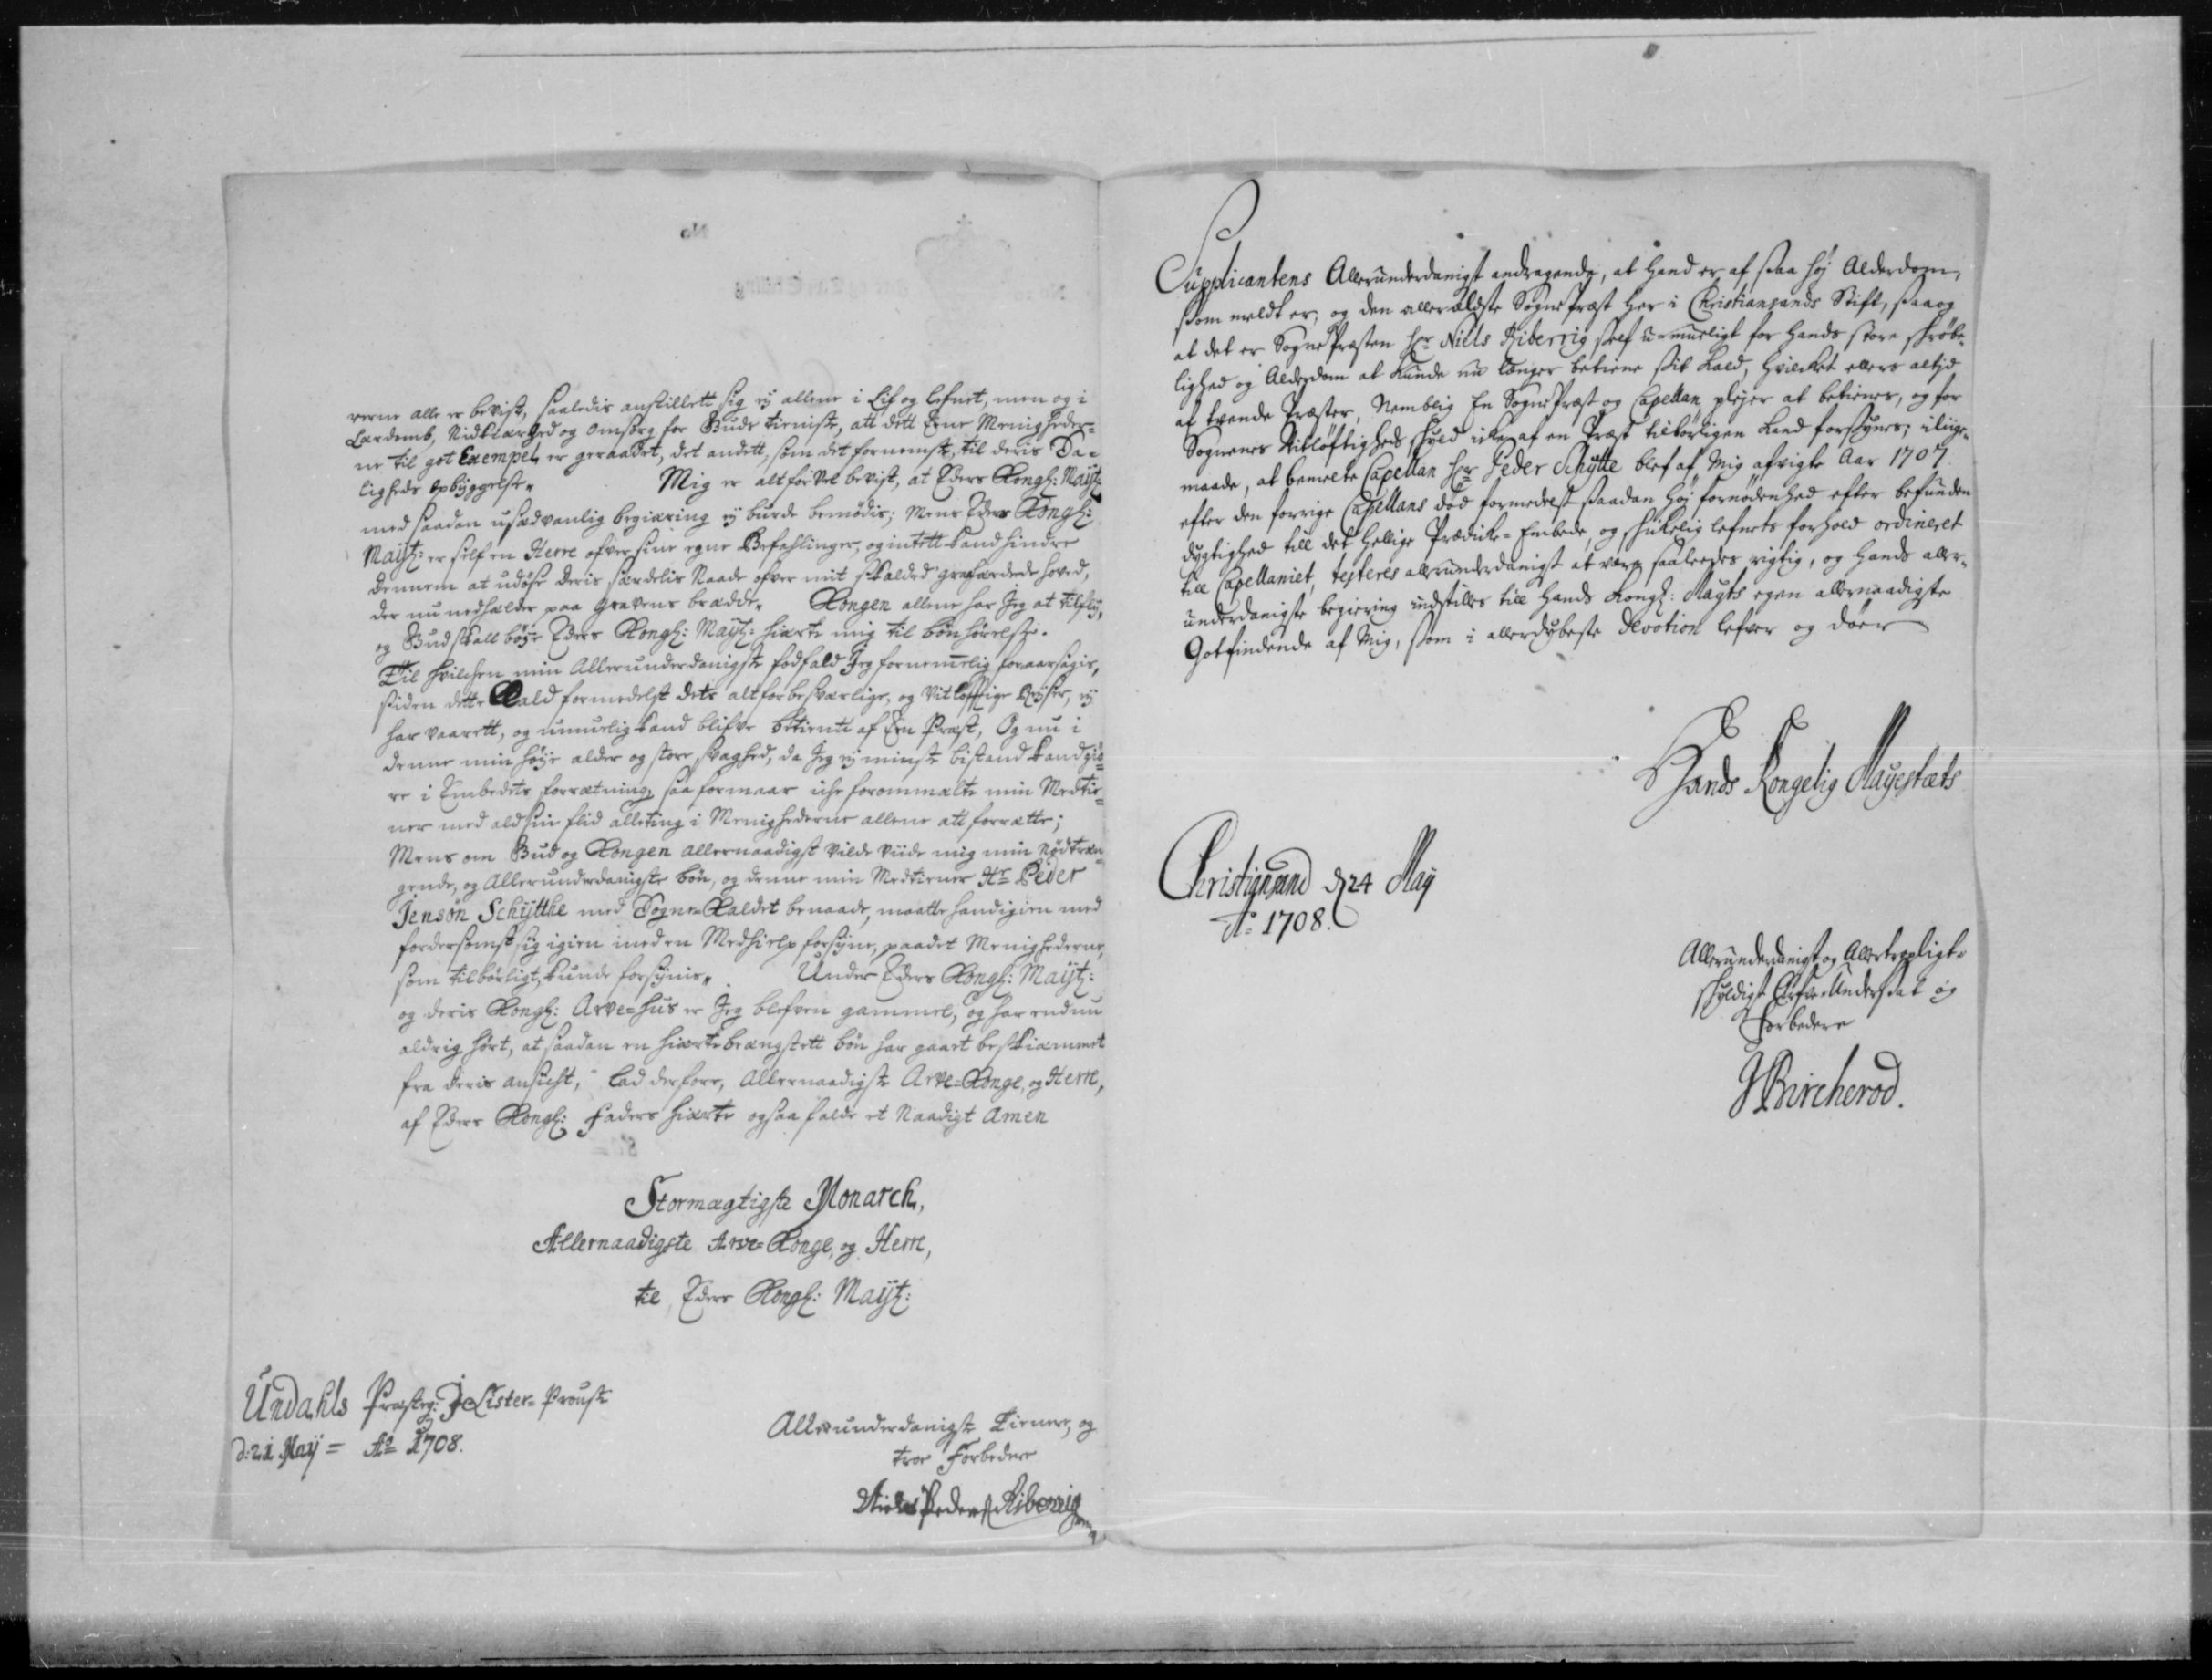 verne alle er bevist, saaledis anstillett sig ej allene i Lif og lefnet, men og i
Lærdomb, Nidkiærhed og omsorg for Guds tieniste, att dett Eene Menigheder-
ne til got Exempel, er geraadet, det andett, som det fornemst, til deris Sa-
ligheds opbyggelse. Mig er altforvel bevist, at Eders Kongl: Mayt:
med saadan usædvanlig begiæring ej burde bemødis; Mens Eders Kongl:
Mayt: er self en Herre ofver sine egne Befahlinger, og intett kand hindre
dennem at udøse deris særdelis Naade ofver mit skalded graahærdede hoved,
der nu nedhælder paa gravens brædde. Kongen allene har Jeg at tilfly,
og Gud skall bøye Eders Kongl: Mayt: hierte mig til bønhørelse.
Til hvilchen min Allerunderdanigste fodfald Jeg fornemelig foraarsagis,
siden dette Kald formedelst dets alt for besværlige, og vitløftige Reyser, ej
har vaarett, og umuelig kand blifve betient af Een Præst, Og nu i
denne min høye alder og store svaghed, da Jeg ej minste bistand kand giø-
re i Embedets forretning, saa formaar iche forommælte min Medtie-
ner med ald sin flid alleting i Menighederne allene att forrætte;
Mens om Gud og Kongen allernaadigst vilde viide mig min nødtræn-
gende, og Allerunderdanigste bøn, og denne min Medtiener Hr Peder
Jensøn Schÿtthe med Sogne-Kaldet benaade, maatte hand igien med
fordersomst sig igien med en Medhielp forsyne, paa det Menighederne,
som tilbørligt, kunde forsynis. Under Eders Kongl: Mayt:
og deris Kongl: Arve-huus er Jeg blefven gammel, og har endnu
aldrig hørt, at saadan en hiertebeængstett bøn har gaaet beskiæmmet
fra deris ansicht, Lad derfore, Allernaadigste Arve-Konge, og Herre,
af Eders Kongl: Faders hierte ogsaa falde et Naadigt Amen
Stormægtigste Monarch,
Allernaadigste Arve-Konge, og Herre,
til Eders Kongl: Mayt:
Undahls Præsteg: J Lister-Proust:
d: 21 Maÿ = Ao 1708.
Allerunderdanigste Tienere, og
troe Forbedere
Niels Peders: Riberrig
Supplicantens Allerunderdanigst andragende, at hand er af saa høj Alderdom,
som meldt er, og den allerældste SognePræst her i Christiansands Stift, saa og
at det er SognePræsten Hr Niels Riberrig self u-mueligt for hands store skrøbe-
lighed og Alderdom at kunde nu længer betiene sit Kald, hvilcket ellers altjd
af tvende Præster, Nemblig En SognePræst og Capellan plejer at betienes, og for
Sognenes Vitløftigheds skyld icke af en Præst tilbørligen kand forsynes; i lige-
maade, at bemelte Capellan Hr Peder Schytte blef af mig afvigte Aar 1707
efter den forrige Capellans død formedelst saadan høj fornødenhed efter befunden
dygtighed till det hellige Prædicke-Embede, og skickelig lefnets forhold ordineret
till Capellaniet, testeres allerunderdanigst at være saaleedes rigtig, og hands aller-
underdanigste begiering indstilles till hands Kongl: Mayts egen allernaadigste
Gotfindende af Mig, som i allerdybeste devotion lefver og døer
Hands Kongelig Mayestæts
Christiansand d 24 Maÿ
Ao 1708.
Allerunderdanigst og Allertroeligt-
skyldigst Arfve-Undersaat og
Forbedere
J Bircherod.